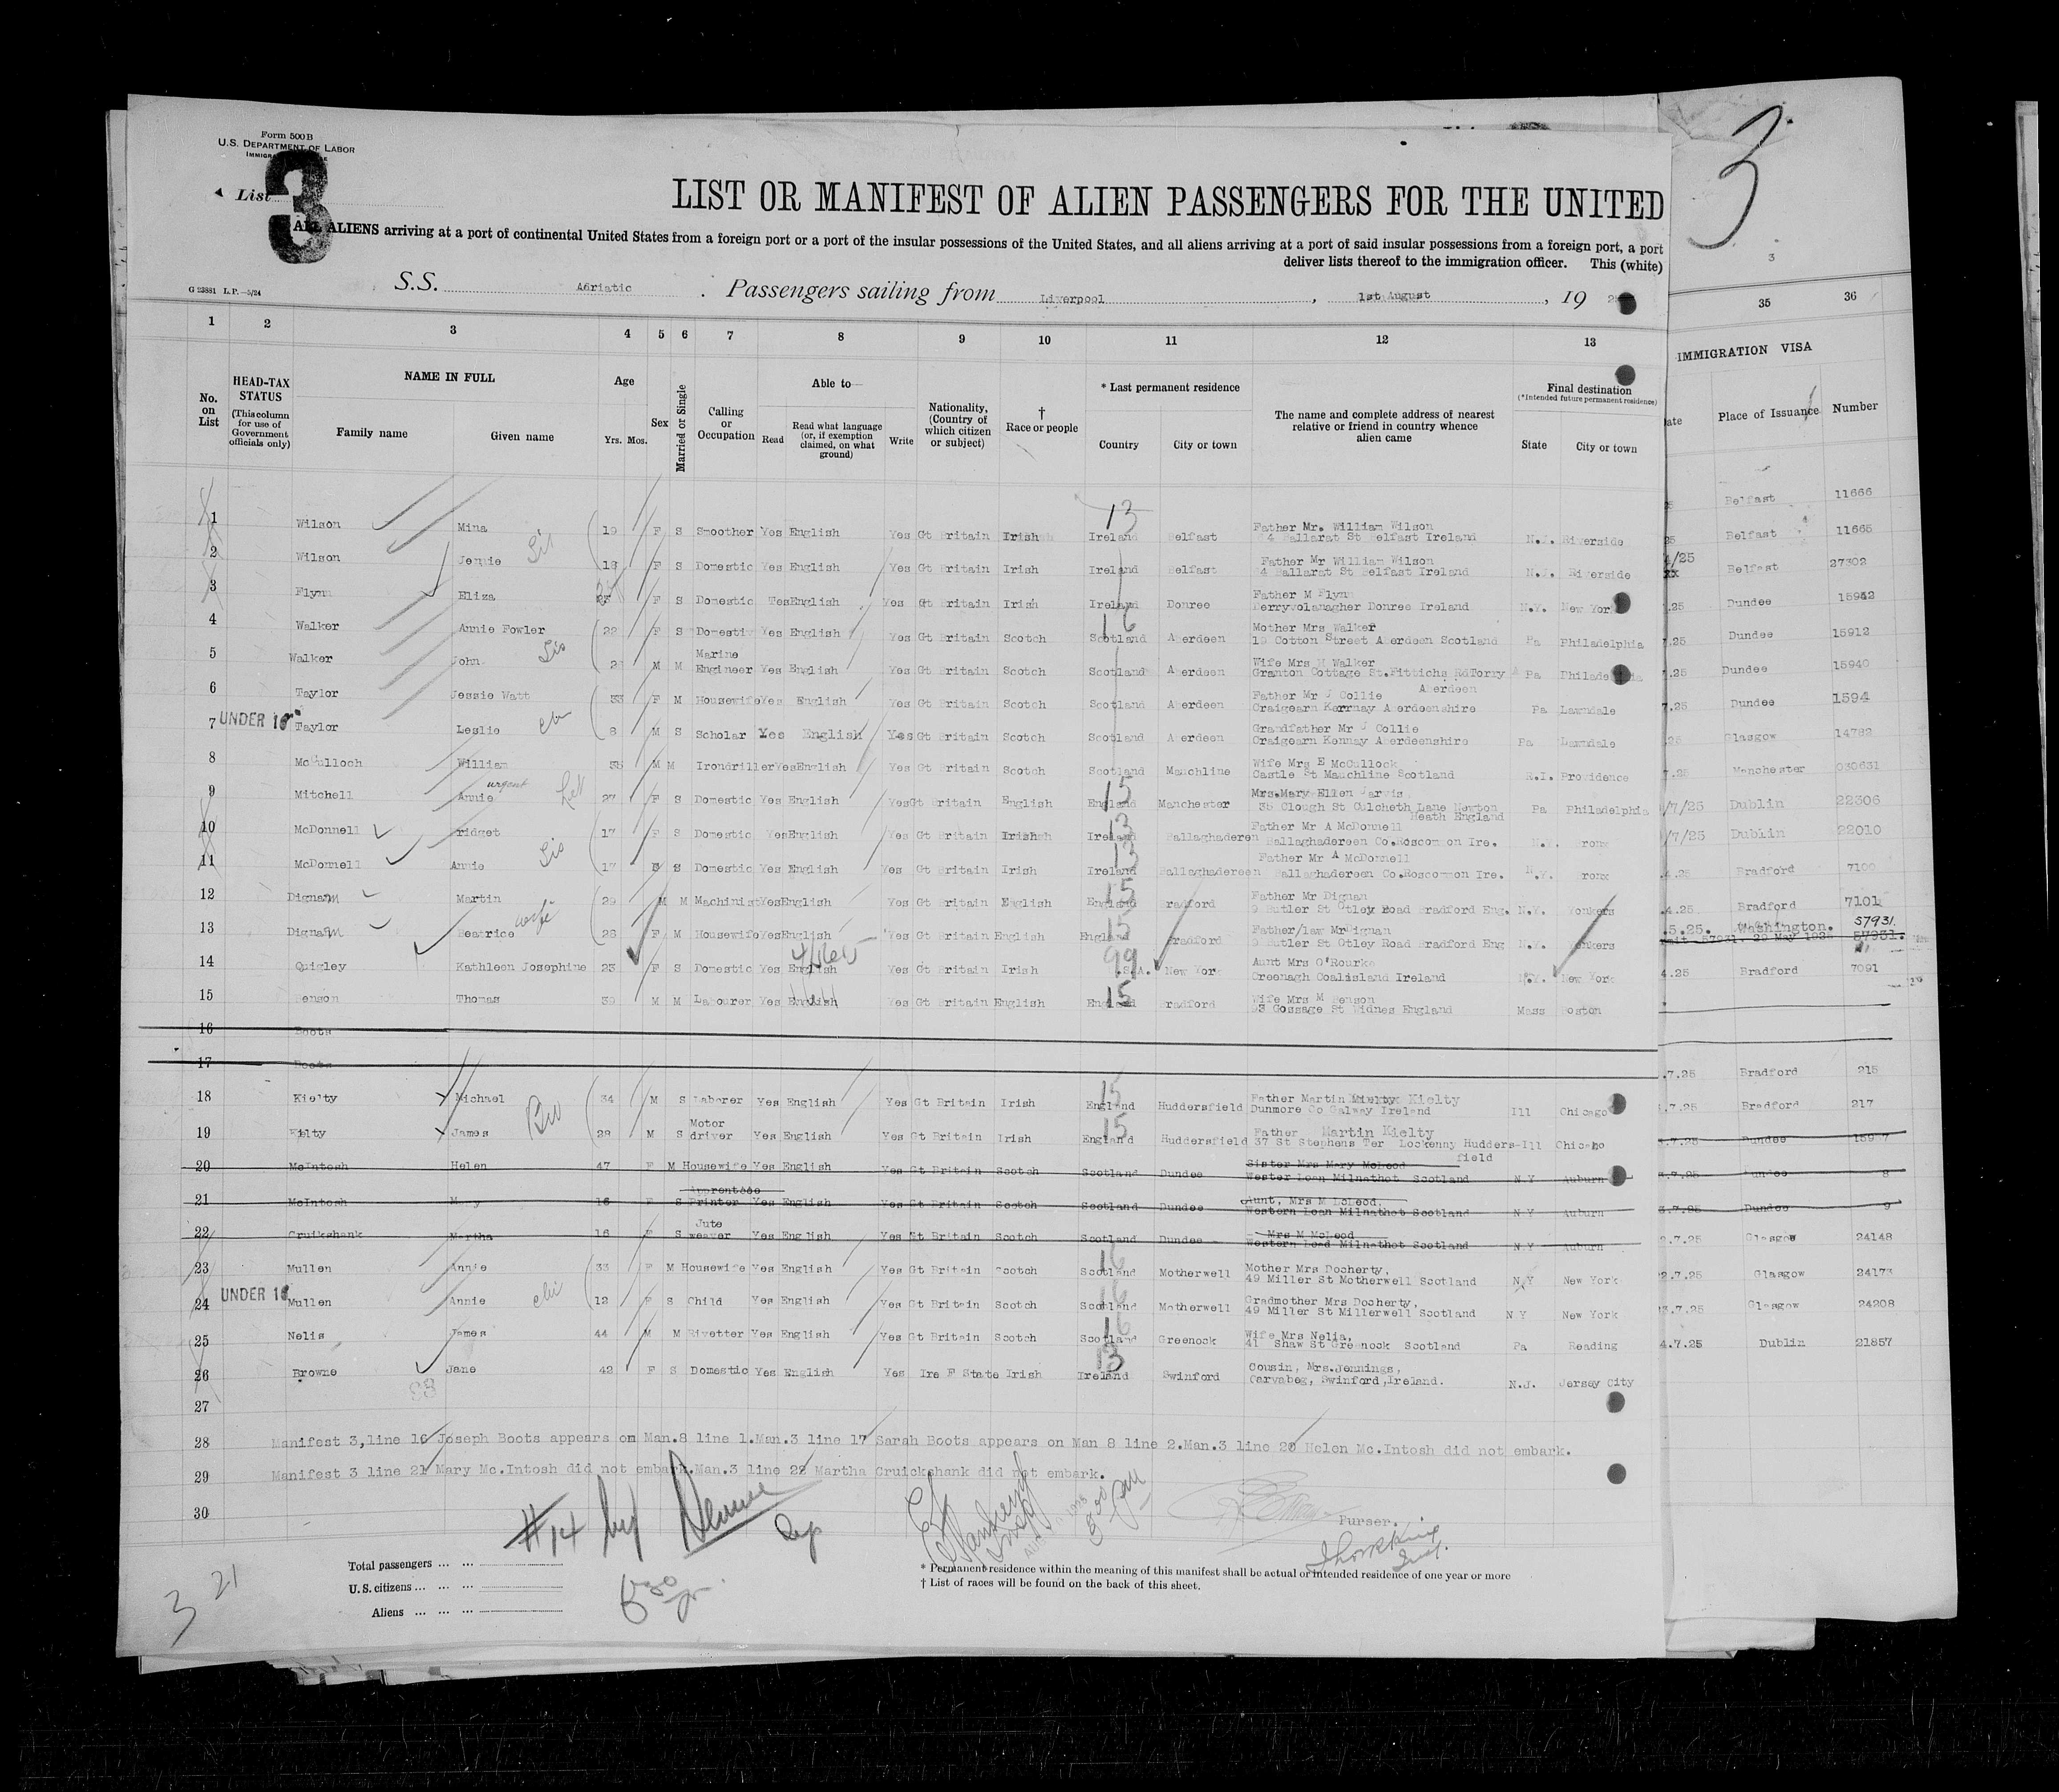 Form 500B
U.S. DEPARTMENT OF LABOR
List
3
LIST OR MANIFEST OF ALIEN PASSENGERS FOR THE UNITED
ALL ALIENS arriving at a port of continental United States from a foreign port or a port of the insular possessions of the United States, and all aliens arriving at a port of said insular possessions from a foreign port, a port
deliver lists thereof to the immigration officer. This (white)
G 23881 L.P.—5/24
S.S. Adriatic . Passengers sailing from Liverpool , 1st August , 19
1 2 3 4 5 6 7 8 9 10 11 12 13
No. on List
HEAD-TAX STATUS
(This column for use of Government officials only)
NAME IN FULL
Family name Given name
Age
Yrs. Mos.
Sex
Married or Single
Calling or Occupation
Able to—
Read
Read what language (or, if exemption claimed, on what ground)
Write
Nationality, (Country of which citizen or subject)
† Race or people
* Last permanent residence
Country City or town
The name and complete address of nearest relative or friend in country whence alien came
Final destination
(*Intended future permanent residence)
State City or town
1 Wilson Mina 19 F S Smoother Yes English Yes Gt Britain Irish 13 Ireland Belfast Father Mr. William Wilson
Ballarat St Belfast Ireland N.J. Riverside
2 Wilson Jennie Sis 18 F S Domestic Yes English Yes Gt Britain Irish Ireland Belfast Father Mr William Wilson
Ballarat St Belfast Ireland N.J. Riverside
3 Flynn Eliza F S Domestic Yes English Yes Gt Britain Irish Ireland Donree Father M Flynn
Derryvolanagher Donree Ireland N.Y. New York
4 Walker Annie Fowler 22 F S Domestic Yes English Yes Gt Britain Scotch 16 Scotland Aberdeen Mother Mrs Walker
Cotton Street Aberdeen Scotland Pa Philadelphia
5 Walker John Sis M M Marine Engineer Yes English Yes Gt Britain Scotch Scotland Aberdeen Wife Mrs Walker
Granton Cottage St.Fittichs Rd Torry Aberdeen Pa Philadelphia
6 Taylor Jessie Watt 33 F M Housewife Yes English Yes Gt Britain Scotch Scotland Aberdeen Father Mr J Collie
Craigearn Kemnay Aberdeenshire Pa Lawndale
7 UNDER 16 Taylor Leslie 8 M S Scholar Yes English Yes Gt Britain Scotch Scotland Aberdeen Grandfather Mr J Collie
Craigearn Kemnay Aberdeenshire Pa Lawndale
8 McCulloch William M M Irondriller Yes English Yes Gt Britain Scotch Scotland Mauchline Wife Mrs E McCullock
Castle St Mauchline Scotland R.I. Providence
9 Mitchell Annie 27 F S Domestic Yes English Yes Gt Britain English 15 England Manchester Mrs.Mary Ellen Jarvis
35 Clough St Culcheth Lane Newton Heath England Pa Philadelphia
10 McDonnell Bridget 17 F S Domestic Yes English Yes Gt Britain Irish 13 Ireland Ballaghadereen Father Mr A McDonnell
Ballaghadereen Co.Roscommon Ire. N.Y. Bronx
11 McDonnell Annie Sis 17 S Domestic Yes English Yes Gt Britain Irish 13 Ireland Ballaghadereen Father Mr A McDonnell
Ballaghadereen Co.Roscommon Ire. N.Y. Bronx
12 Dignam Martin 29 M M Machinist Yes English Yes Gt Britain English 15 England Bradford Father Mr Dignan
9 Butler St Otley Road Bradford Eng. N.Y. Yonkers
13 Dignam Beatrice wife 28 F M Housewife Yes English Yes Gt Britain English 15 England Bradford Father/law Mr Dignan
9 Butler St Otley Road Bradford Eng N.Y. Yonkers
14 Quigley Kathleen Josephine 23 F S Domestic Yes English Yes Gt Britain Irish 99 U.S.A. New York Aunt Mrs O'Rourke
Creenagh Coalisland Ireland N.Y. New York
15 Benson Thomas 39 M M Labourer Yes English Yes Gt Britain English 15 England Bradford Wife Mrs M Benson
Gossage St Widnes England Mass Boston
16 Boots
17 Boots
18 Kielty Michael 34 M S Laborer Yes English Yes Gt Britain Irish 15 England Huddersfield Father Martin Kielty
Dunmore Co Galway Ireland Ill Chicago
19 Kielty James Bro 28 M S Motor driver Yes English Yes Gt Britain Irish 15 England Huddersfield Father Martin Kielty
37 St Stephens Ter Lockenny Huddersfield Ill Chicago
20 McIntosh Helen 47 F M Housewife Yes English Yes Gt Britain Scotch Scotland Dundee Sister Mrs Mary McLeod
Wester Loan Milnathot Scotland N Y Auburn
21 McIntosh Mary 16 F S Apprentice Printer Yes English Yes Gt Britain Scotch Scotland Dundee Aunt, Mrs M McLeod,
Western Loan Milnathot Scotland N Y Auburn
22 Cruikshank Martha 16 F S Jute weaver Yes English Yes Gt Britain Scotch Scotland Dundee Mrs M McLeod
Western Load Milnathot Scotland N Y Auburn
23 Mullen Annie 33 F M Housewife Yes English Yes Gt Britain Scotch 16 Scotland Motherwell Mother Mrs Docherty,
49 Miller St Motherwell Scotland N Y New York
24 UNDER 16 Mullen Annie 12 F S Child Yes English Yes Gt Britain Scotch 16 Scotland Motherwell Gradmother Mrs Docherty,
49 Miller St Millerwell Scotland N Y New York
25 Nelis James 44 M M Rivetter Yes English Yes Gt Britain Scotch 16 Scotland Greenock Wife Mrs Nelis,
41 Shaw St Greenock Scotland Pa Reading
26 Browne Jane 42 F S Domestic Yes English Yes Ire F State Irish 13 Ireland Swinford Cousin, Mrs.Jennings,
Carvabeg, Swinford,Ireland. N.J. Jersey City
27
28 Manifest 3,line 16 Joseph Boots appears on Man.8 line 1.Man.3 line 17 Sarah Boots appears on Man 8 line 2.Man.3 line 20 Helen Mc.Intosh did not embark.
29 Manifest 3 line 21 Mary Mc.Intosh did not embark.Man.3 line 22 Martha Cruickshank did not embark.
30
#14 by
Purser.
Total passengers ... ...
U.S. citizens ... ... ...
Aliens ... ... ...
3 21
* Permanent residence within the meaning of this manifest shall be actual or intended residence of one year or more
† List of races will be found on the back of this sheet.
3
3
35 36
IMMIGRATION VISA
Place of Issuance Number
Belfast 11666
Belfast 11665
Belfast 27302
Dundee 15942
Dundee 15912
Dundee 15940
Dundee 1594
Glasgow 14782
Manchester 030631
/7/25 Dublin 22306
/7/25 Dublin 22010
Bradford 7100
.4.25 Bradford 7101
.5.25. Washington. 57931.
29 May 1925 57931.
4.25 Bradford 7091
.7.25 Bradford 215
.7.25 Bradford 217
.7.25 Dundee
.7.25 Dundee 8
3.7.25 Dundee 9
2.7.25 Glasgow 24148
2.7.25 Glasgow 24173
3.7.25 Glasgow 24208
4.7.25 Dublin 21857